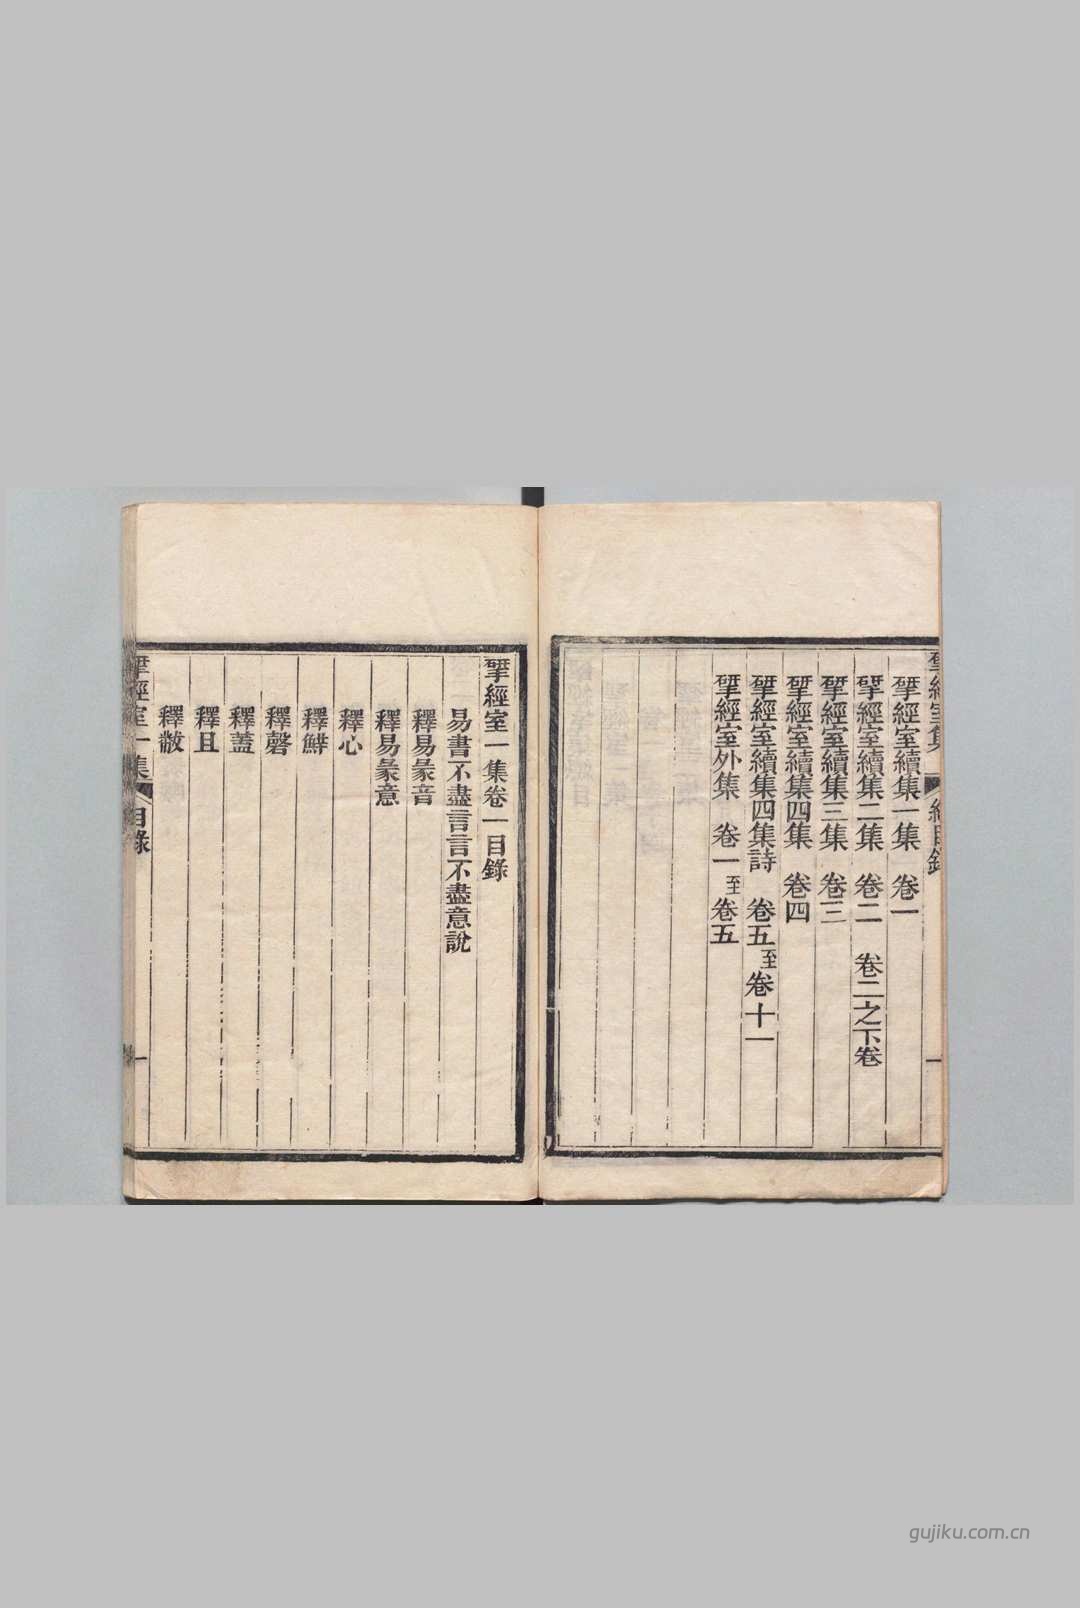 揅經室集 總目錄 一
揅經室續集一集 卷一
揅經室續集二集 卷二 卷二之下卷
揅經室續集三集 卷三
揅經室續集四集 卷四
揅經室續集四集詩 卷五至卷十一
揅經室外集 卷一至卷五
揅經室一集卷一目錄
易書不盡言言不盡意說
釋易彖音
釋易彖意
釋心
釋鮮
釋磬
釋蓋
釋且
釋黻
揅經室一集 目錄 一
gujiku.com.cn